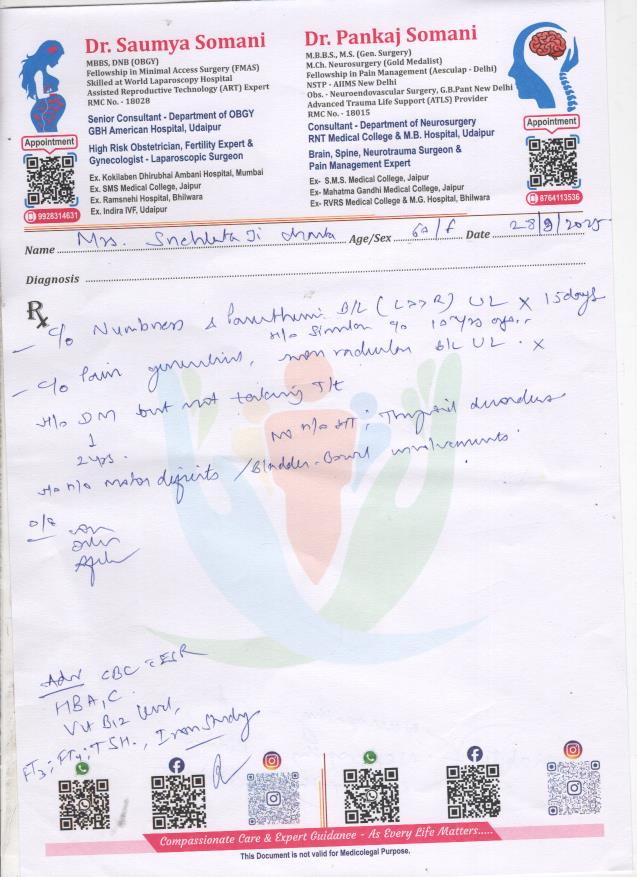 Dr. Saumya Somani
MBBS, DNB (OBGY)
Fellowship in Minimal Access Surgery (FMAS)
Skilled at World Laparoscopy Hospital
Assisted Reproductive Technology (ART) Expert
RMC No. - 18028
Senior Consultant - Department of OBGY
GBH American Hospital, Udaipur
High Risk Obstetrician, Fertility Expert &
Gynecologist - Laparoscopic Surgeon
Ex. Kokilaben Dhirubhai Ambani Hospital, Mumbai
Ex. SMS Medical College, Jaipur
Ex. Ramsnehi Hospital, Bhilwara
Ex. Indira IVF, Udaipur
Appointment
9928314631
Dr. Pankaj Somani
M.B.B.S., M.S. (Gen. Surgery)
M.Ch. Neurosurgery (Gold Medalist)
Fellowship in Pain Management (Aesculap - Delhi)
NSTP - AIIMS New Delhi
Obs. - Neuroendovascular Surgery, G.B.Pant New Delhi
Advanced Trauma Life Support (ATLS) Provider
RMC No. - 18015
Consultant - Department of Neurosurgery
RNT Medical College & M.B. Hospital, Udaipur
Brain, Spine, Neurotrauma Surgeon &
Pain Management Expert
Ex- S.M.S. Medical College, Jaipur
Ex- Mahatma Gandhi Medical College, Jaipur
Ex- RVRS Medical College & M.G. Hospital, Bhilwara
Appointment
8764113536
Name Mrs. Age/Sex 60/f Date 28/9/2025
Diagnosis
Rx
- C/o Numbness & B/L (L>>R) UL x 15days
H/o similar c/o 10 yrs ago.
- C/o Pain , non radicular B/L UL. x
H/o DM but not taking T/t
2 yrs. No H/o HT; Thyroid disorders
No H/o motor deficits / Bladder-Bowel involvements.
O/E
Adv CBC ESR
HBA1C.
Vit B12 level,
FT3; FT4; TSH., Iron Study
Compassionate Care & Expert Guidance - As Every Life Matters.....
This Document is not valid for Medicolegal Purpose.